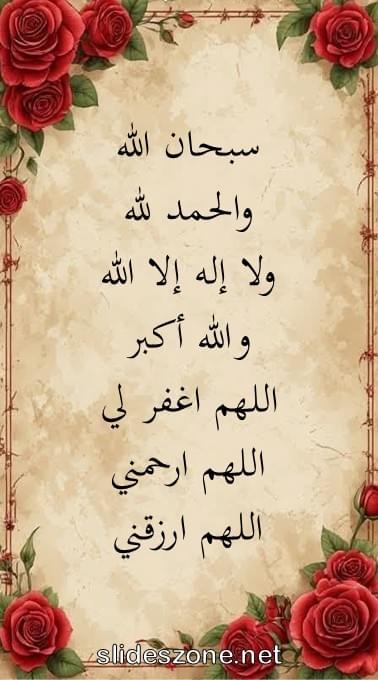 سبحان الله
والحمد لله
ولا إله إلا الله
والله أكبر
اللهم اغفر لي
اللهم ارحمني
اللهم ارزقني
slideszone.net